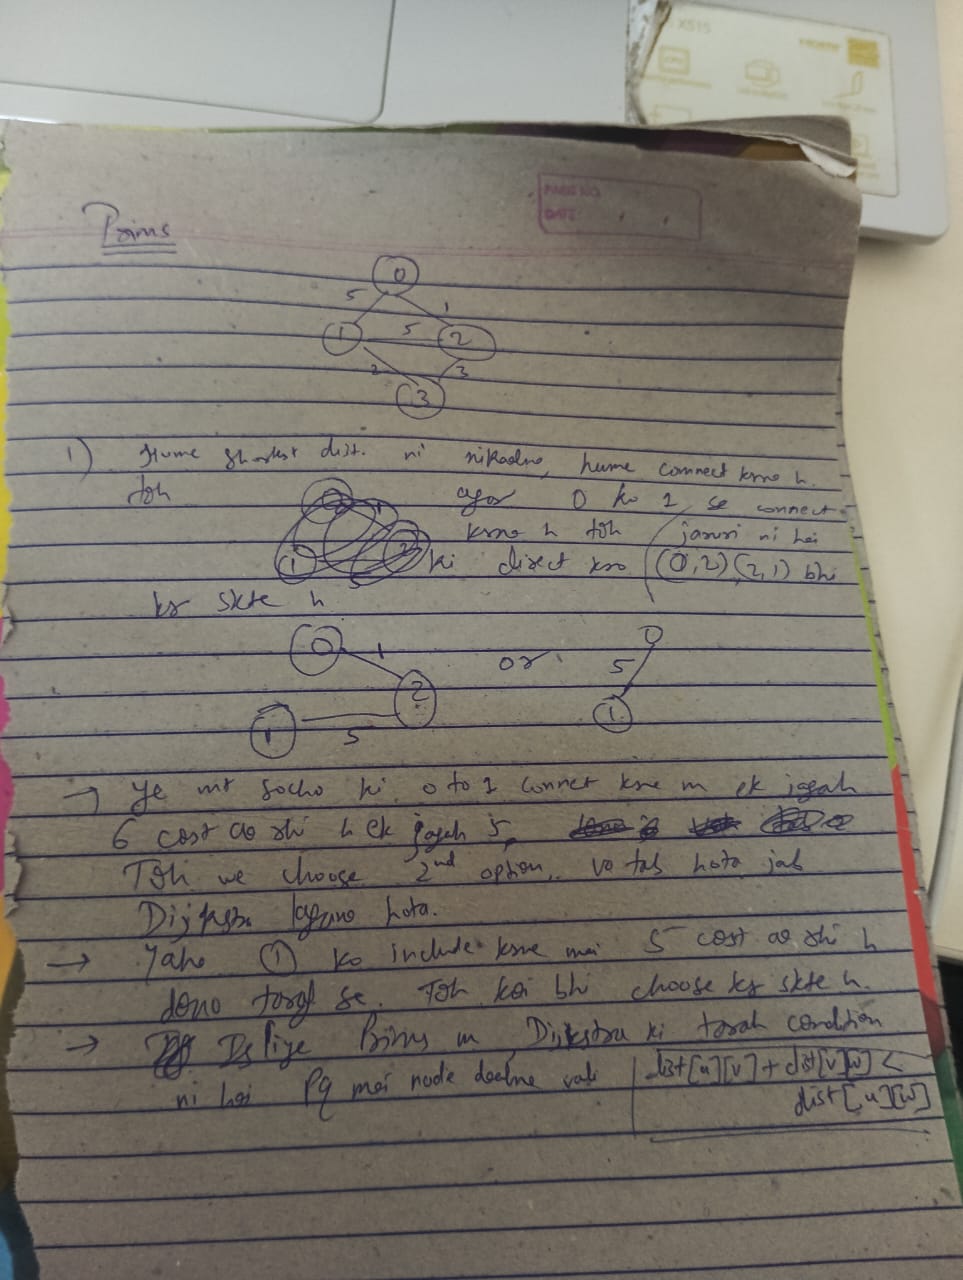 X515
PAGE NO.
DATE:
Prims
0
5 1
1 5 2
2 3
3
1) Hume shortest dist. ni nikaalna, hume connect krna h.
toh agar 0 ko 1 se connect
krna h toh jaruri ni hai
ki direct kro (0,2) (2,1) bhi
kr skte h
0 1 or 0
2 5
1 5 1
→ Ye mt socho ki 0 to 1 connet krne m ek jagah
6 cost aa rhi h ek jagah 5,
Toh we choose 2nd option, vo tab hota jab
Dijkstra lagana hota.
→ Yaha 1 ko include krne mai 5 cost aa rhi h
dono taraf se. Toh koi bhi choose kr skte h.
→ Is liye Prims m Dijkstra ki tarah condition
ni hai Pq mai node daalne vali dist[u][v] + dist[v][w] <
dist[u][w]